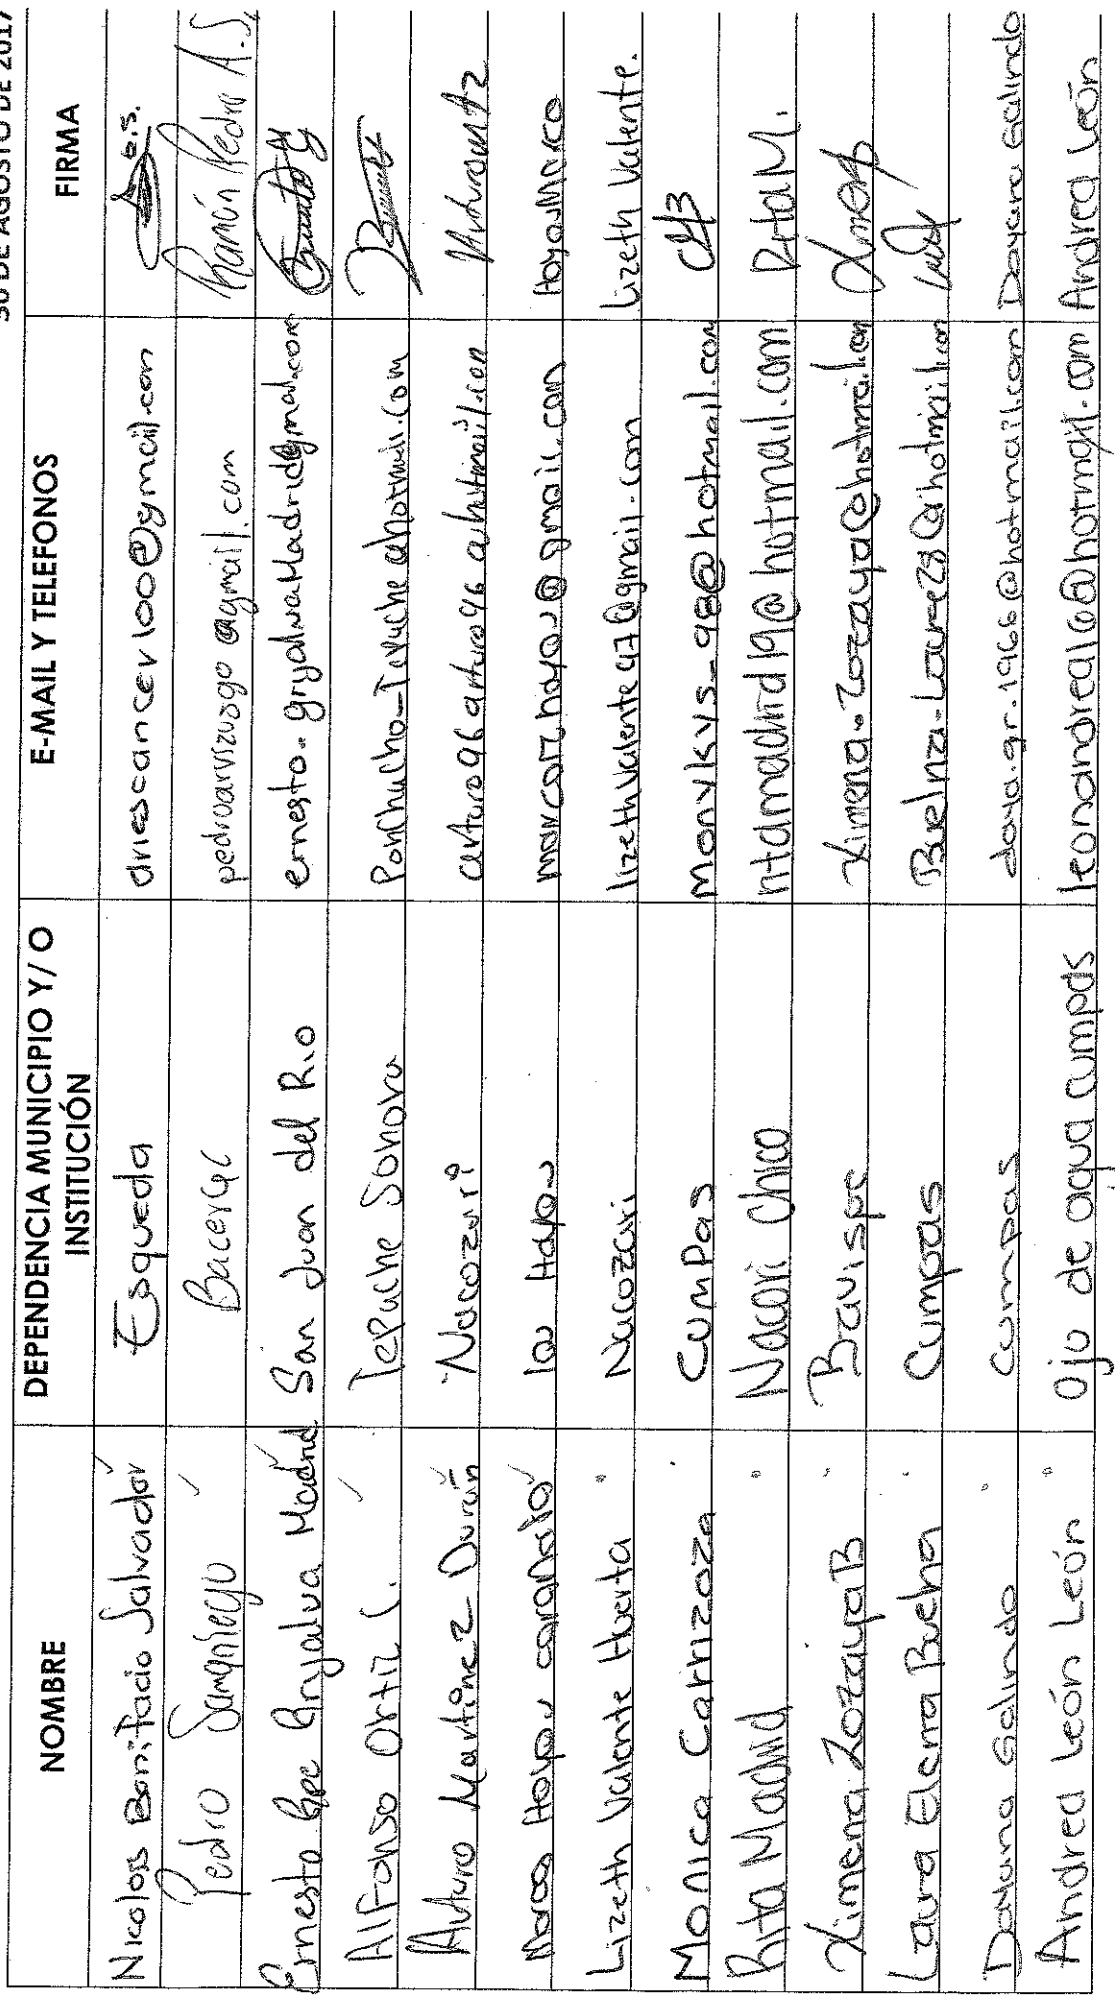 30 DE AGOSTO DE 2017
NOMBRE DEPENDENCIA MUNICIPIO Y/ O INSTITUCIÓN E-MAIL Y TELEFONOS FIRMA
Nicolas Bonifacio Salvador Esqueda ariescancer100@gmail.com
Pedro Samaniego Bacerac pedroarvizu390@gmail.com Ramón Pedro A.S.
Ernesto Gpe Grijalva Madrid San Juan del Rio ernesto.grijalvaMadrid@gmail.com
Alfonso Ortiz C. Tepache Sonora Ponchucho_Tepache@hotmail.com
Arturo Martínez Durán Nacozari arturo96arturo96@hotmail.com
Marco Hoyos la Hoya marcozhoyos@gmail.com
Lizeth Valente Huerta Nacozari lizethvalente97@gmail.com Lizeth Valente.
Monica Carrizoza Cumpas monykys_98@hotmail.com
Rita Madrid Nacori Chico ritamadrid19@hotmail.com Rita M.
Ximena Zozaya B Bavispe Ximena.Zozaya@hotmail.com
Laura Elena Buelna Cumpas Buelna.Laura28@hotmail.com
Dayana Galindo cumpas daya.gr.1966@hotmail.com Dayana Galindo
Andrea León León Ojo de agua cumpas leonandrea16@hotmail.com Andrea León